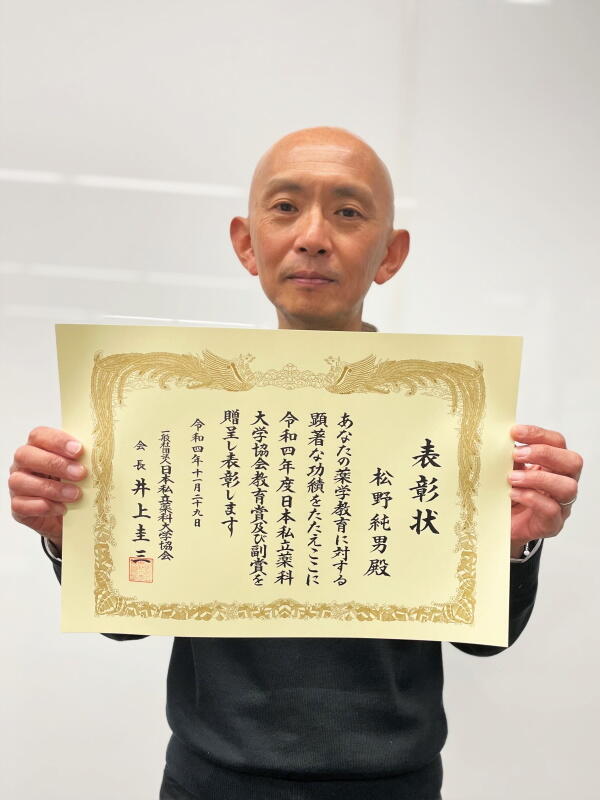 表彰状
松野純男殿
あなたの薬学教育に対する
顕著な功績をたたえここに
令和四年度日本私立薬科
大学協会教育賞及び副賞を
贈呈し表彰します
令和四年十一月二十九日
一般社団法人日本私立薬科大学協会
会長 井上圭三